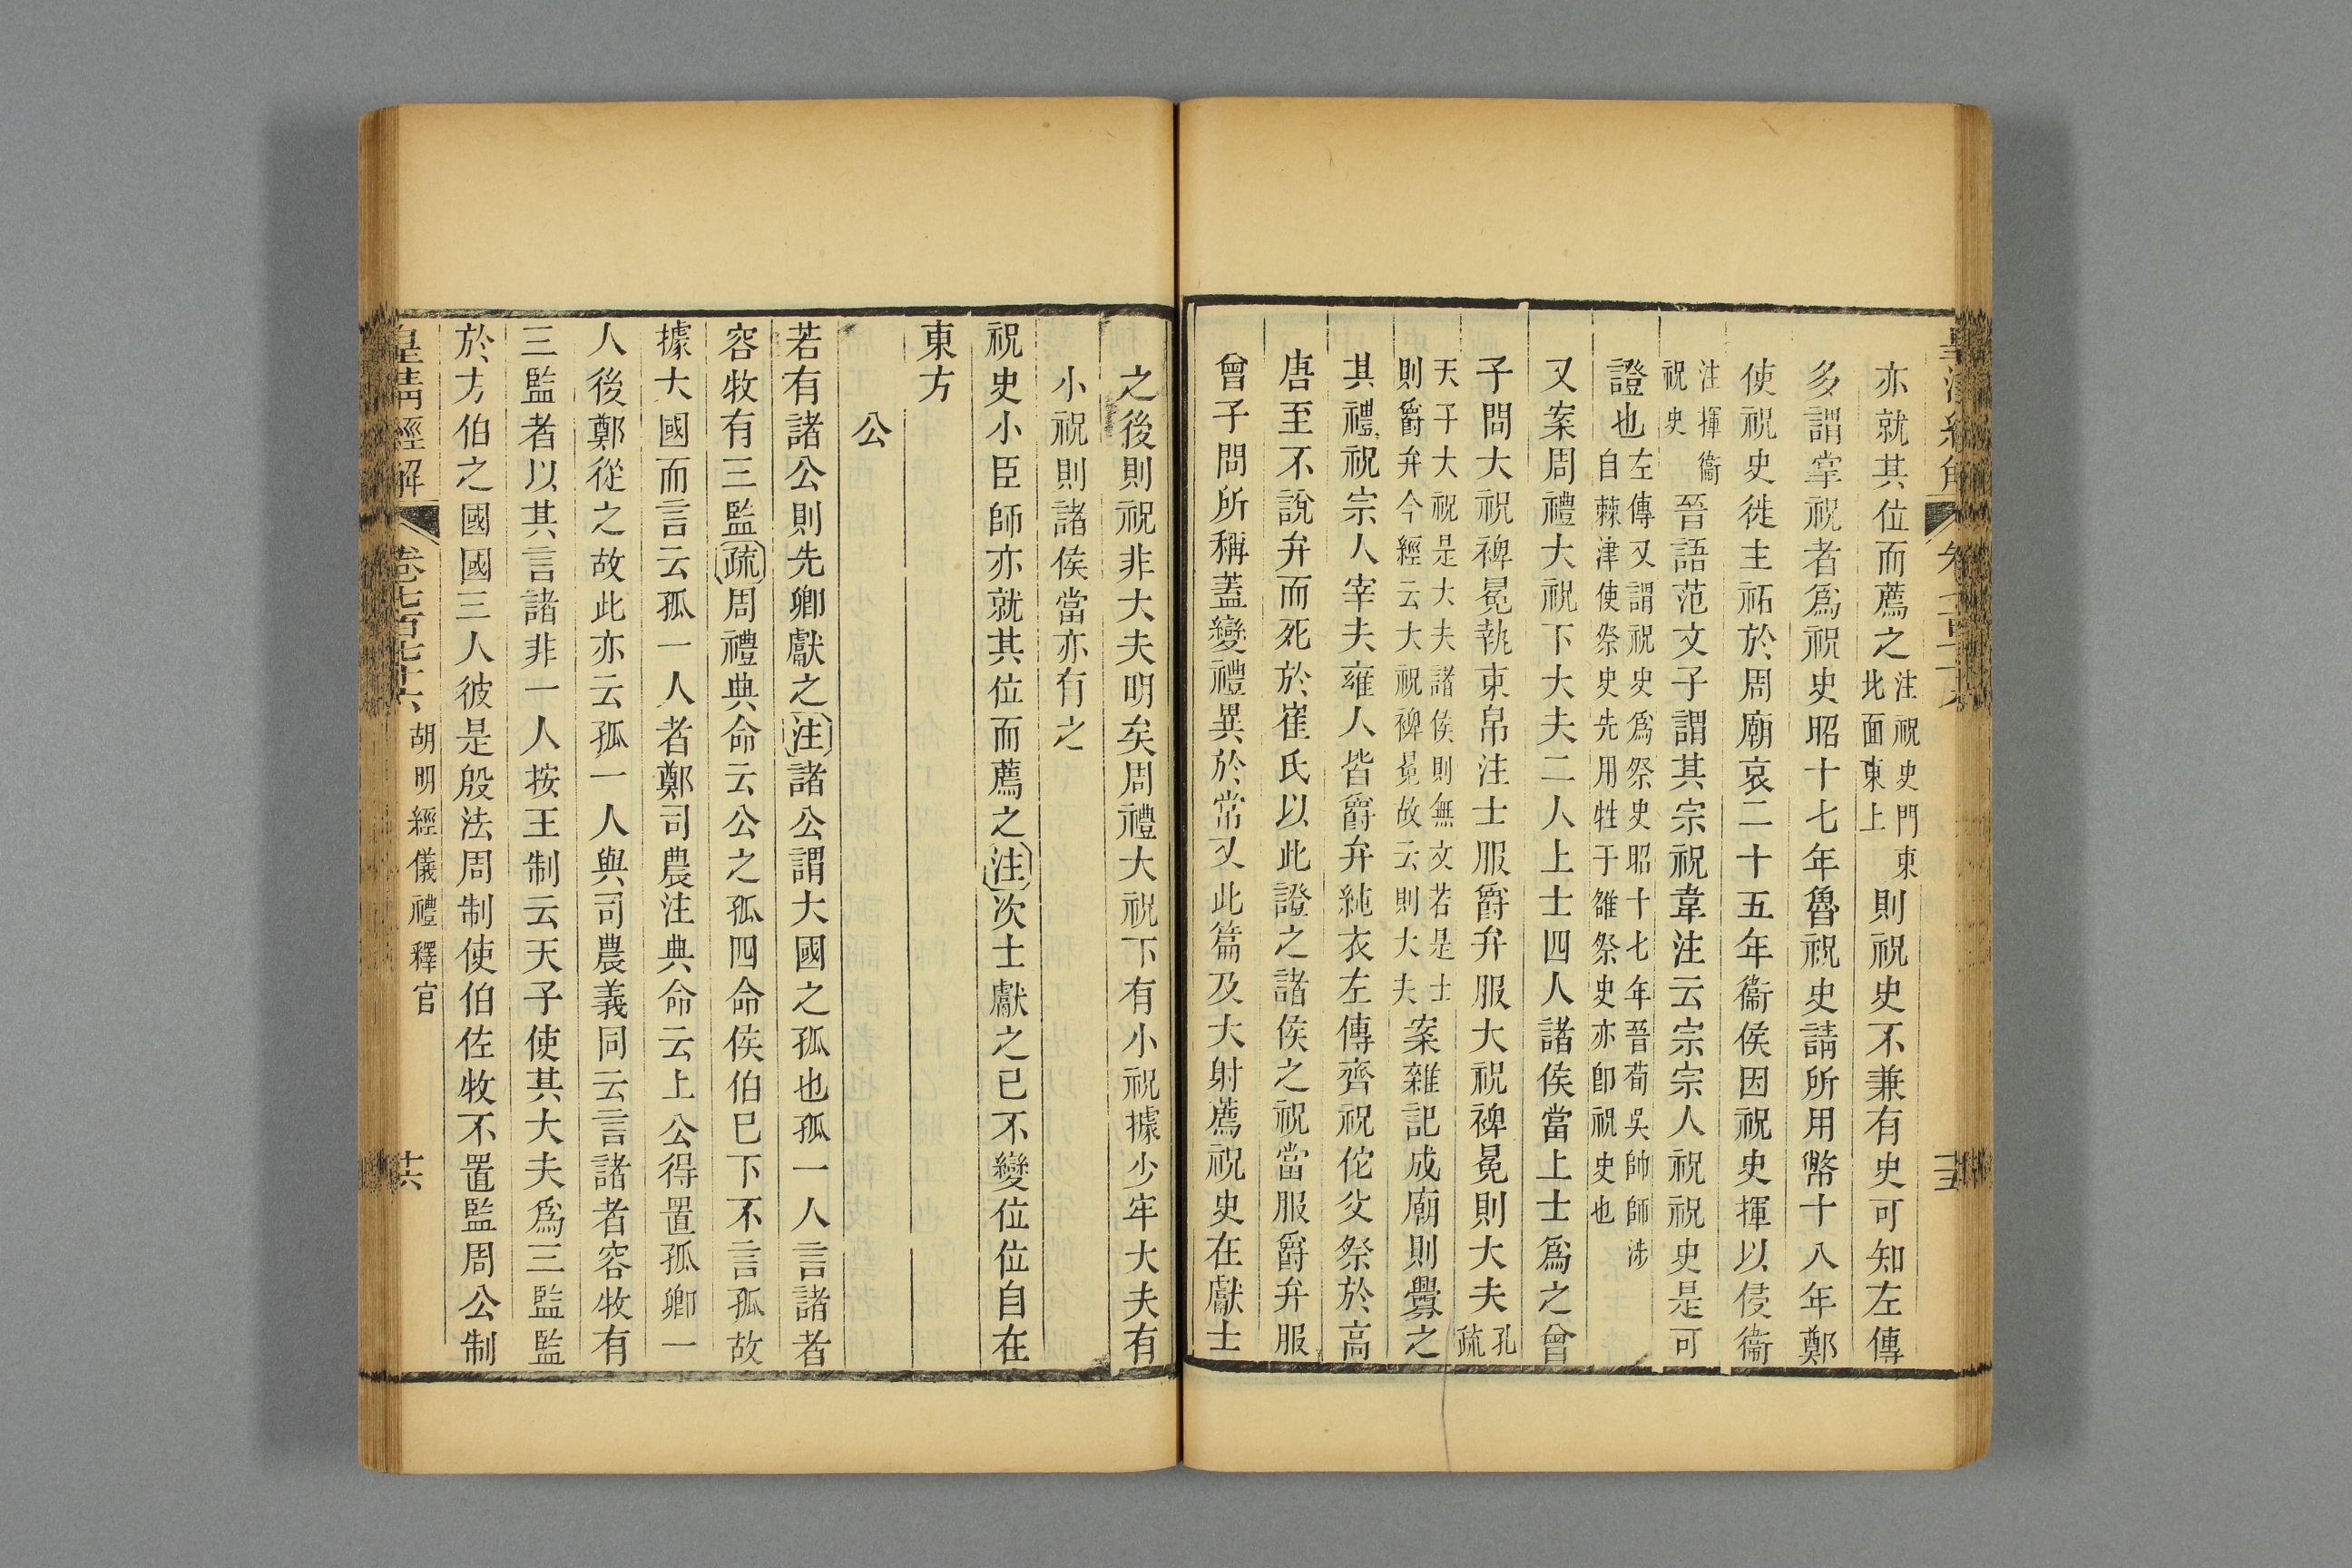 亦就其位而薦之注祝史門東北面東上則祝史不兼有史可知左傳
多謂掌祝者爲祝史昭十七年魯祝史請所用幣十八年鄭
使祝史徙主祏於周廟哀二十五年衞侯因祝史揮以侵衞
注揮衞祝史晉語范文子謂其宗祝韋注云宗宗人祝祝史是可
證也左傳又謂祝史爲祭史昭十七年晉荀吳帥師涉自棘津使祭史先用牲于雒祭史亦卽祝史也
又案周禮大祝下大夫二人上士四人諸侯當上士爲之曾
子問大祝裨冕執束帛注士服爵弁服大祝裨冕則大夫孔疏
天子大祝是大夫諸侯則無文若是士則爵弁今經云大祝裨冕故云則大夫案雜記成廟則釁之
其禮祝宗人宰夫雍人皆爵弁純衣左傳齊祝佗父祭於高
唐至不說弁而死於崔氏以此證之諸侯之祝當服爵弁服
曾子問所稱蓋變禮異於常又此篇及大射薦祝史在獻士
之後則祝非大夫明矣周禮大祝下有小祝據少牢大夫有
小祝則諸侯當亦有之
祝史小臣師亦就其位而薦之注次士獻之已不變位位自在
東方
公
若有諸公則先卿獻之注諸公謂大國之孤也孤一人言諸者
容牧有三監疏周禮典命云公之孤四命侯伯已下不言孤故
據大國而言云孤一人者鄭司農注典命云上公得置孤卿一
人後鄭從之故此亦云孤一人與司農義同云言諸者容牧有
三監者以其言諸非一人按王制云天子使其大夫爲三監監
於方伯之國國三人彼是殷法周制使伯佐牧不置監周公制
皇清經解 卷七百七十六 胡明經儀禮釋官 廿六